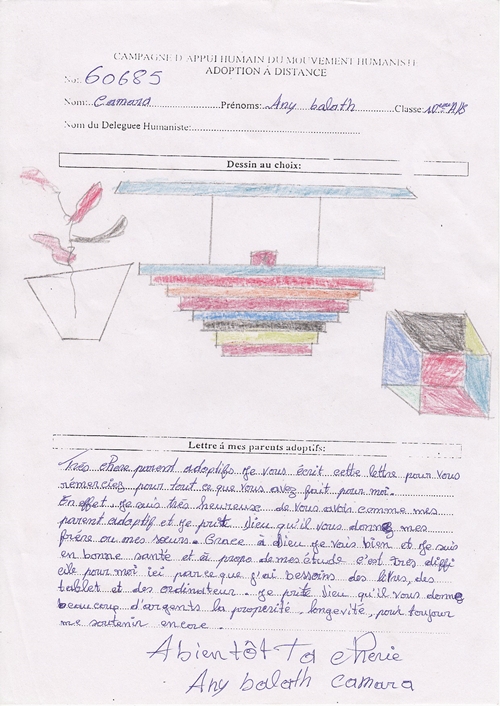 CAMPAGNE D'APPUI HUMAIN DU MOUVEMENT HUMANISTE
ADOPTION À DISTANCE
No: 60685
Nom: Camara Prénoms: Any balath Classe:
Nom du Deleguee Humaniste:
Dessin au choix:
Lettre á mes parents adoptifs:
Trés chere parent adoptifs je vous écrit cette lettre pour vous
rémerciez pour tout ce que vous avez fait pour moi.
En effet je suis très heureuse de vous avoir comme mes
parent adoptif et je prite Dieu qu'il vous donnez mes
frère ou mes sœurs. Grace à Dieu je vais bien et je suis
en bonne santé et à propo de mes étude c'est très diffi
cile pour moi ici parce que j'ai bessoins des livres, des
tablet et des ordinateur. je prite Dieu qu'il vous donne
beaucoup d'argents la properité, longevité, pour toujour
me soutenir encore.
A bientôt Ta cherie
Any balath camara